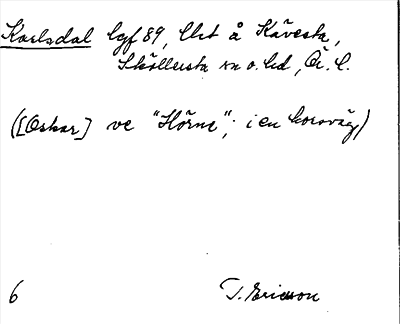 Karlsdal lgf 89, lht å Kävesta,
Sköllersta sn o. hd, Ör. l.
([Oskar] ve "Hörne"; i en korsväg)
6 T. Ericsson